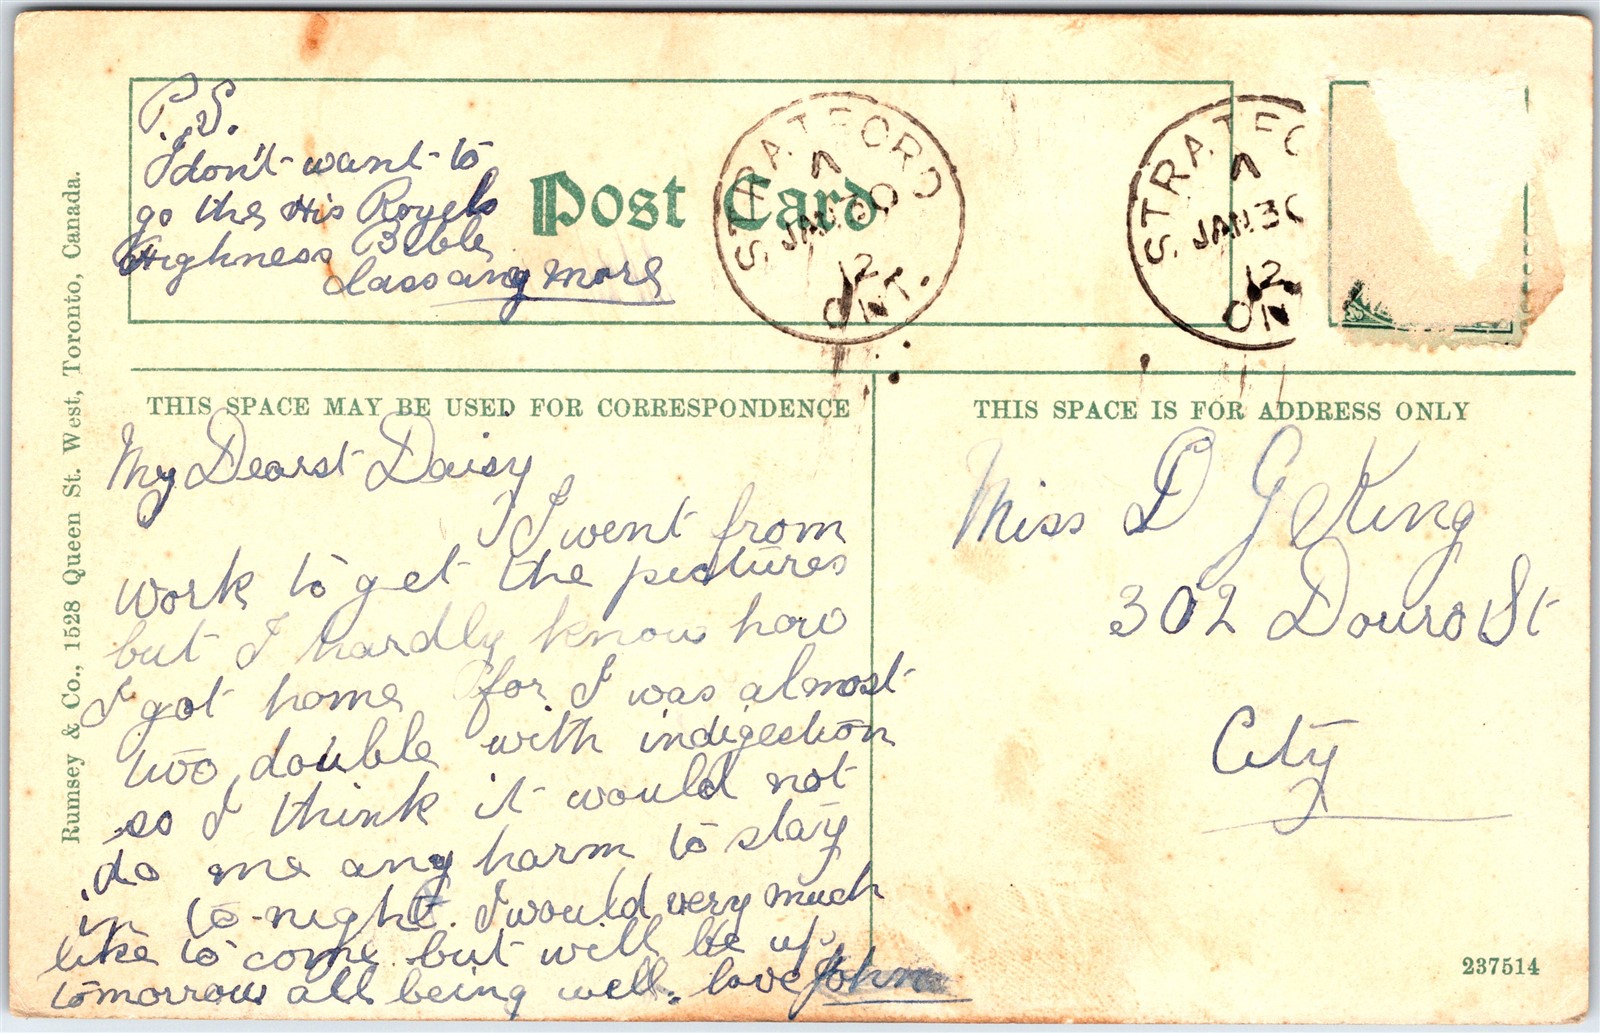 P.S.
I don't want to
go the His Royels
Highness Bible
class any more
Post Card
STRATFORD
JAN 30
12
ONT.
STRATFO
JAN 30
12
ON
Rumsey & Co., 1528 Queen St. West, Toronto, Canada.
THIS SPACE MAY BE USED FOR CORRESPONDENCE
My Dearst Daisy
I went from
work to get the pictures
but I hardly know how
I got home for I was almost
two double with indigestion
so I think it would not
do me any harm to stay
in to-night. I would very much
like to come but will be up
tomorrow all being well. love John
THIS SPACE IS FOR ADDRESS ONLY
Miss D G King
302 Douro St
City
237514